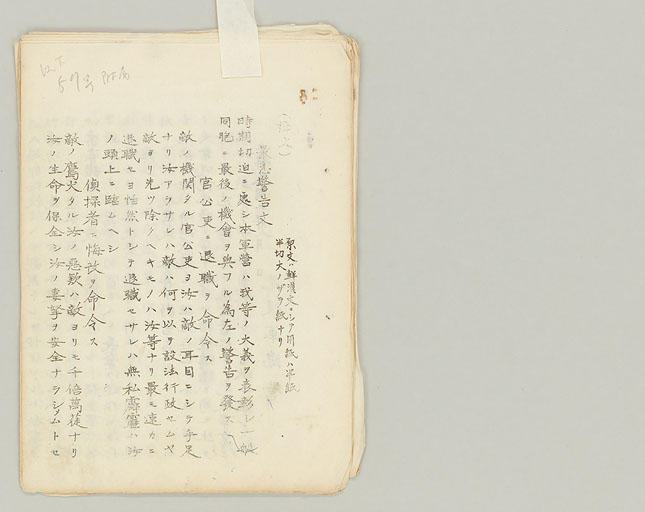 以下
57号 附属
(訳文)
最急警告文
原文ハ鮮漢文ニシテ用紙ハ洋紙
半切大ノザラ紙ナリ
時期切迫ニ処シ本軍営ハ我等ノ大義ヲ表彰シ一般
同胞ニ最後ノ機會ヲ與フル為左ノ警告ヲ發ス
官公吏ニ退職ヲ命令ス
敵ノ機関タル官公吏ヨ汝ハ敵ノ耳目ニシテ手足
ナリ汝アラサレハ敵ハ何ヲ以テ設法行政セムヤ
敵ヨリ先ツ除クヘキモノハ汝等ナリ最モ速カニ
退職セヨ恬然トシテ退職セサレハ無私霹靂ハ汝
ノ頭上ニ臨ムヘシ
偵探者ニ悔改ヲ命令ス
敵ノ鷹犬タル汝ノ惡欺ハ敵ヨリモ千倍萬蓰ナリ
汝ノ生命ヲ保全シ汝ノ妻孥ヲ安全ナラシムトセ